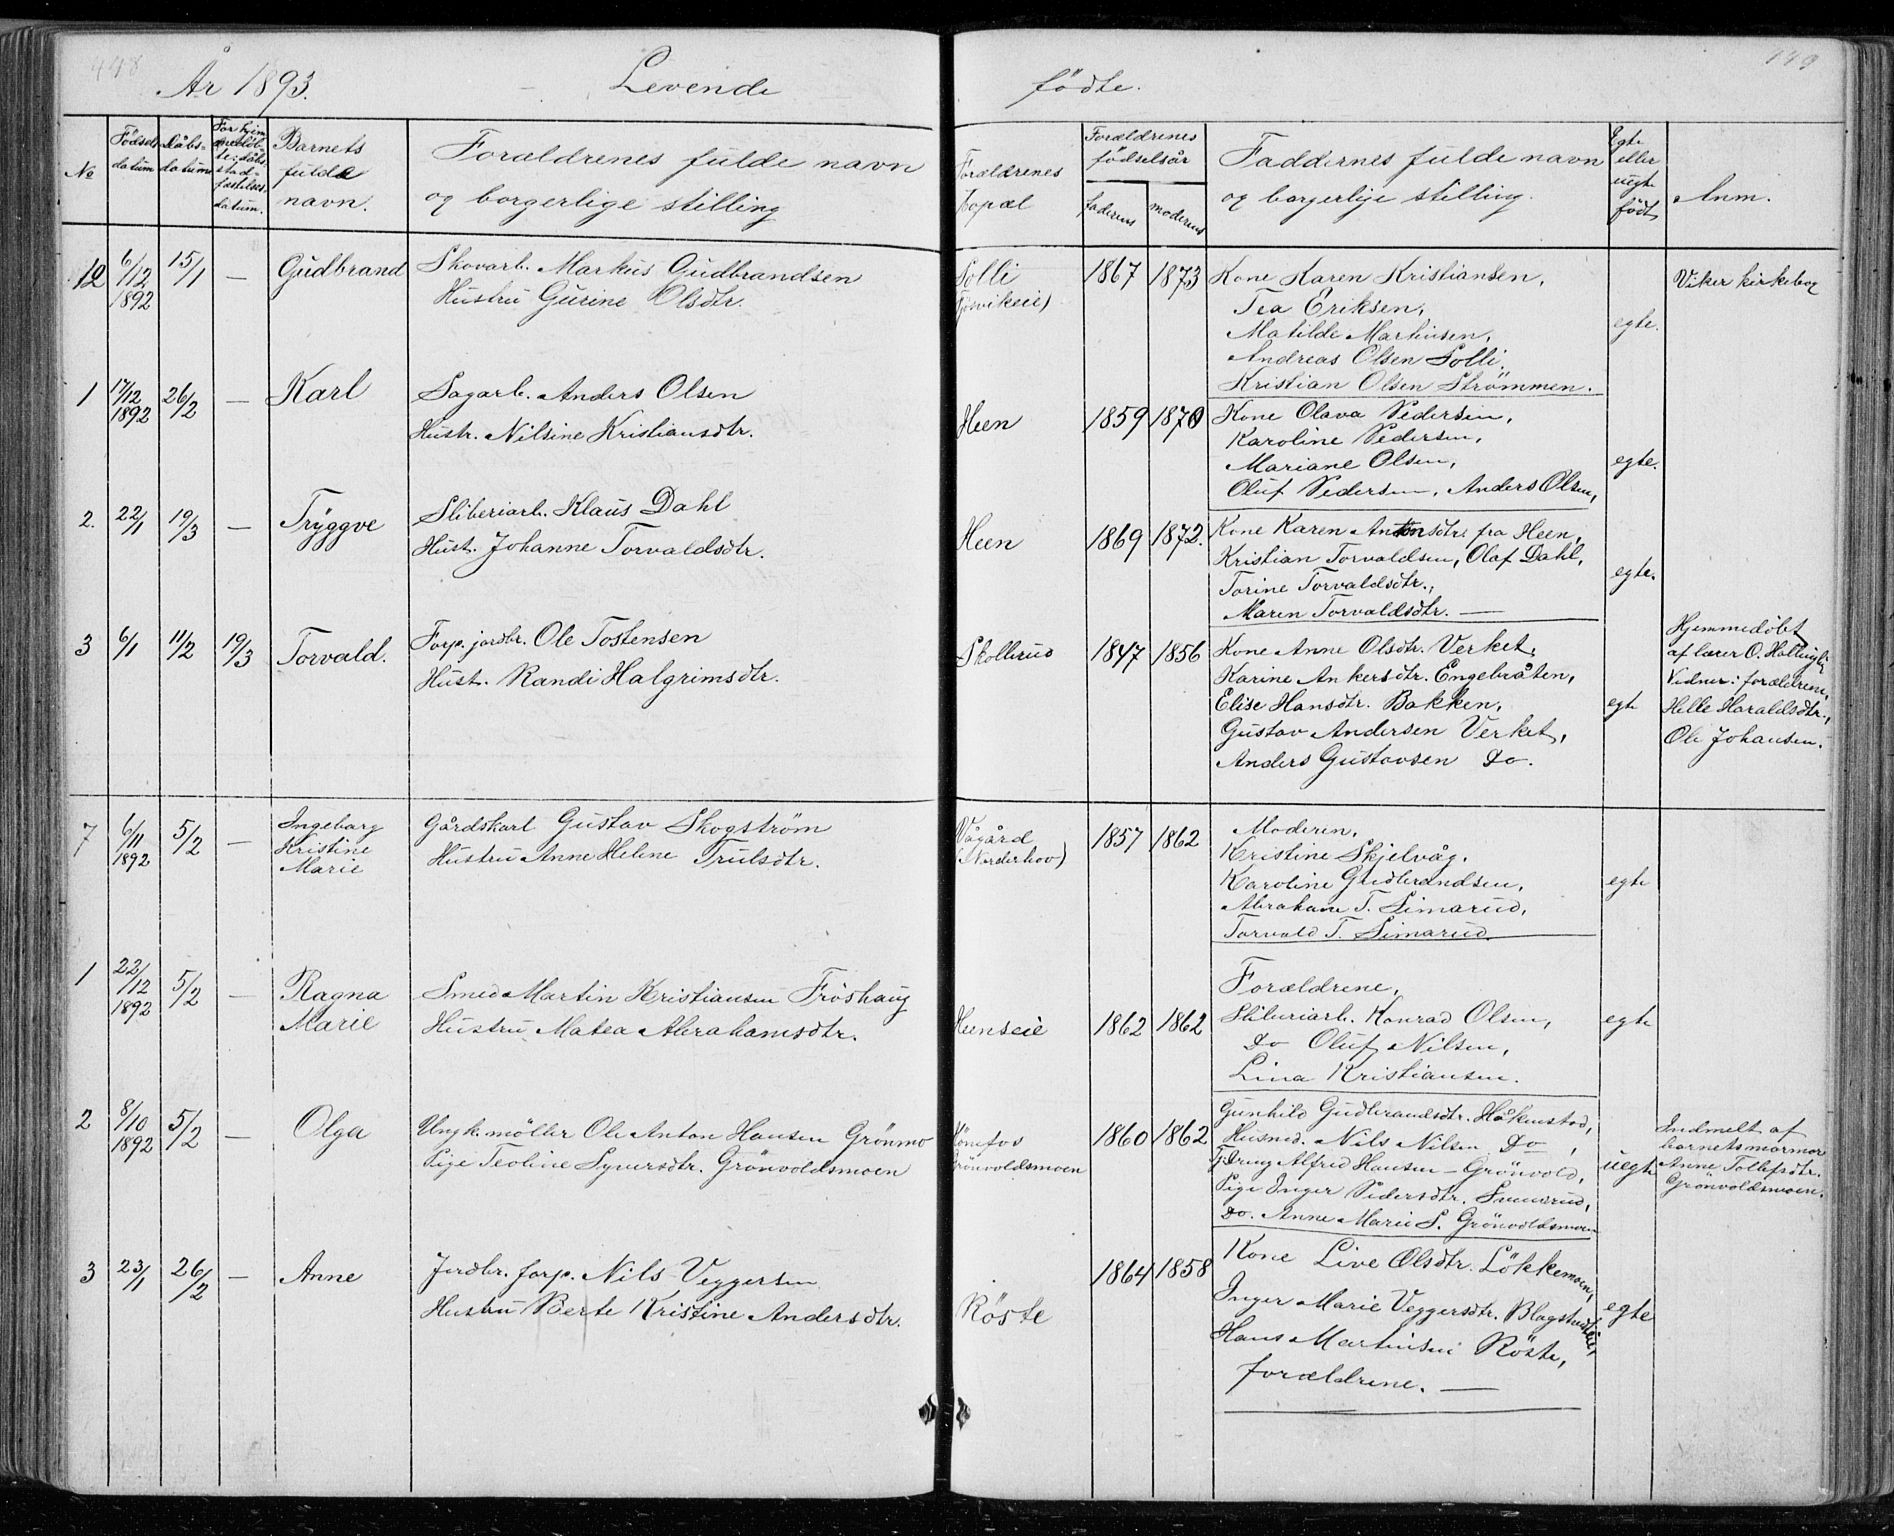 448
År 1893.
Levende
fødte.
449
№
Fødsels-
datum
Dåbs-
datum
datum.
Barnets
fulde
navn.
Forældrenes fulde navn
og borgerlige stilling
Forældrenes
bopæl
Forældrenes
fødselsår
faderens
moderens
Faddernes fulde navn
og borgerlige stilling.
Egte
eller
uegte
født
Anm.
12 6/12 1892 15/1 — Gudbrand
Skovarb. Markus Gudbrandsen
Hustru Gurine Olsdtr.
Solli
1867 1873
Kone Karen Kristiansen,
Tea Eriksen,
Matilde Martinsen,
Andreas Olsen Solli,
Kristian Olsen Strömmen.
egte.
Viker kirkebog
1 17/12 1892 26/2 — Karl
Sagarb. Anders Olsen
Hustr. Nilsine Kristiansdtr.
Heen
1859 1870
Kone Olava Pedersen,
Karoline Pedersen,
Mariane Olsen,
Oluf Pedersen, Anders Olsen,
egte.
2. 22/1 19/3 — Tryggve
Sliberiarb. Klaus Dahl
Hust. Johanne Torvaldsdtr.
Heen
1869 1872.
Kone Karen Antonsdtr. fra Heen,
Kristian Torvaldsen, Olaf Dahl,
Torine Torvaldsdtr.,
Maren Torvaldsdtr. —
egte.
3 6/1 11/2 19/3 Torvald.
Forp. jordbr. Ole Tostensen
Hust. Randi Halgrimsdtr.
Skollerud
1847 1856
Kone Anne Olsdtr. Verket,
Karine Ankersdtr. Engebråten,
Elise Hansdtr. Bakken,
Gustav Andersen Verket,
Anders Gustavsen Do.
egte
Hjemmedøbt
af lærer O.
Vidner: forældrene,
Helle Haraldsdtr.,
Ole Johansen.
7 6/11 1892 5/2 — Ingeborg
Kristine
Marie
Gårdskarl Gustav Skogström
Hustru Anne Helene Trulsdtr.
Vågård
(Norderhov)
1857 1862
Moderen,
Kristine Skjelvåg.
Karoline Gudbrandsen,
Abraham T. Simarud,
Torvald T. Simarud.
egte
1 22/12 1892 5/2 — Ragna
Marie
Smed Martin Kristiansen Fröshaug
Hustru Matea Abrahamsdtr.
Heenseie
1862 1862
Forældrene,
Sliberiarb. Konrad Olsen,
Do Oluf Nilsen,
Lina Kristiansen.
egte
2 8/10 1892 5/2 — Olga
Ungk. möller Ole Anton Hansen Grönmo
Pige Teoline Syversdtr. Grönvoldsmoen
Hönefos
Grönvoldsmoen
1860 1862
Gunhild Gudbrandsdtr. Håkenstad,
Husmd. Nils Nilsen Do,
Tj.dreng Alfred Hansen — Grönvold,
Pige Inger Pedersdtr.
Do. Anne Marie S. Grönvoldsmoen
uegte
Indmelt af
barnets mormor
Anne Tollefsdtr.
Grönvoldsmoen.
3 23/1 26/2 — Anne
Jordbr. forp. Nils Veggersen
Hustru Berte Kristine Andersdtr.
Röste
1864 1858
Kone Live Olsdtr. Lökkemoen,
Inger Marie Veggersdtr.
Hans Martinsen Röste,
forældrene. —
egte